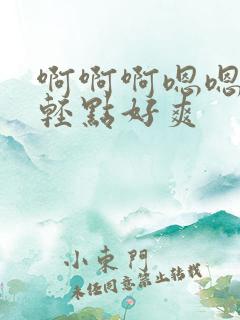 啊啊啊嗯嗯
輕點好爽
小東門
未经同意禁止转载